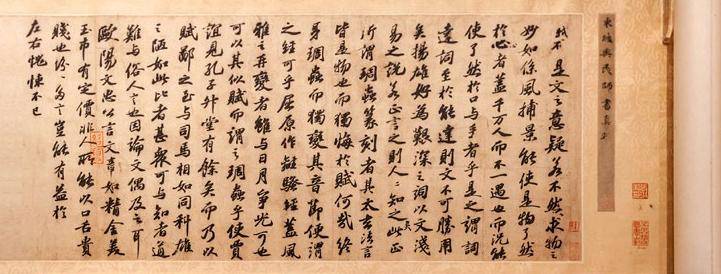 東坡與民師書真
我不是文之意疑若不然求物之
妙如係風捕景能使是物了然
於心者蓋千万人而不一遇也而況能
使了然於口與手者乎是之謂詞
達詞至於能達則文不可勝用
矣揚雄好為艱深之詞以文淺
易之說若正言之則人〻知之此正
所謂琱蟲篆刻者其太玄法言
皆是物也而獨悔於賦何哉終
身琱蟲而獨變其音節便謂
之経可乎屈原作離騷経蓋風
雅之再變者雖與日月爭光可也
可以其似賦而謂之琱蟲乎使賈
誼見孔子升堂有餘矣而乃以
賦鄙之至與司馬相如同科雄
之陋如此比者甚衆可與知者道
難與俗人言也因論文偶及之耳
歐陽文忠公言文章如精金美
玉市有定價非人所能以口舌貴
賤也紛〻多言豈能有益於
左右愧悚不已